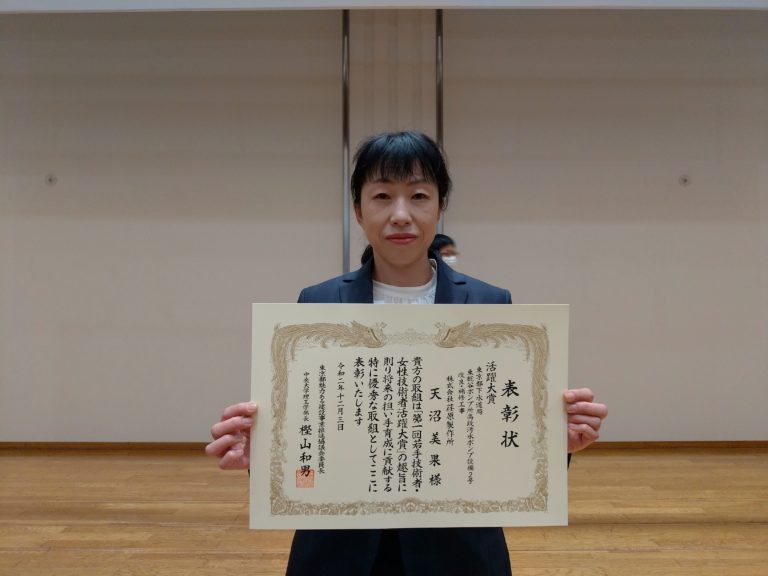 表彰状
活躍大賞
東京都下水道局
東糀谷ポンプ所高段汚水ポンプ設備2号
改良・補修工事
株式会社荏原製作所
天沼美果様
貴方の取組は「第一回若手技術者・
女性技術者活躍大賞」の趣旨に
則り将来の担い手育成に貢献する
特に優秀な取組としてここに
表彰いたします
令和二年十二月三日
東京都魅力ある建設事業推進協議会委員長
中央大学理工学部長
樫山和男